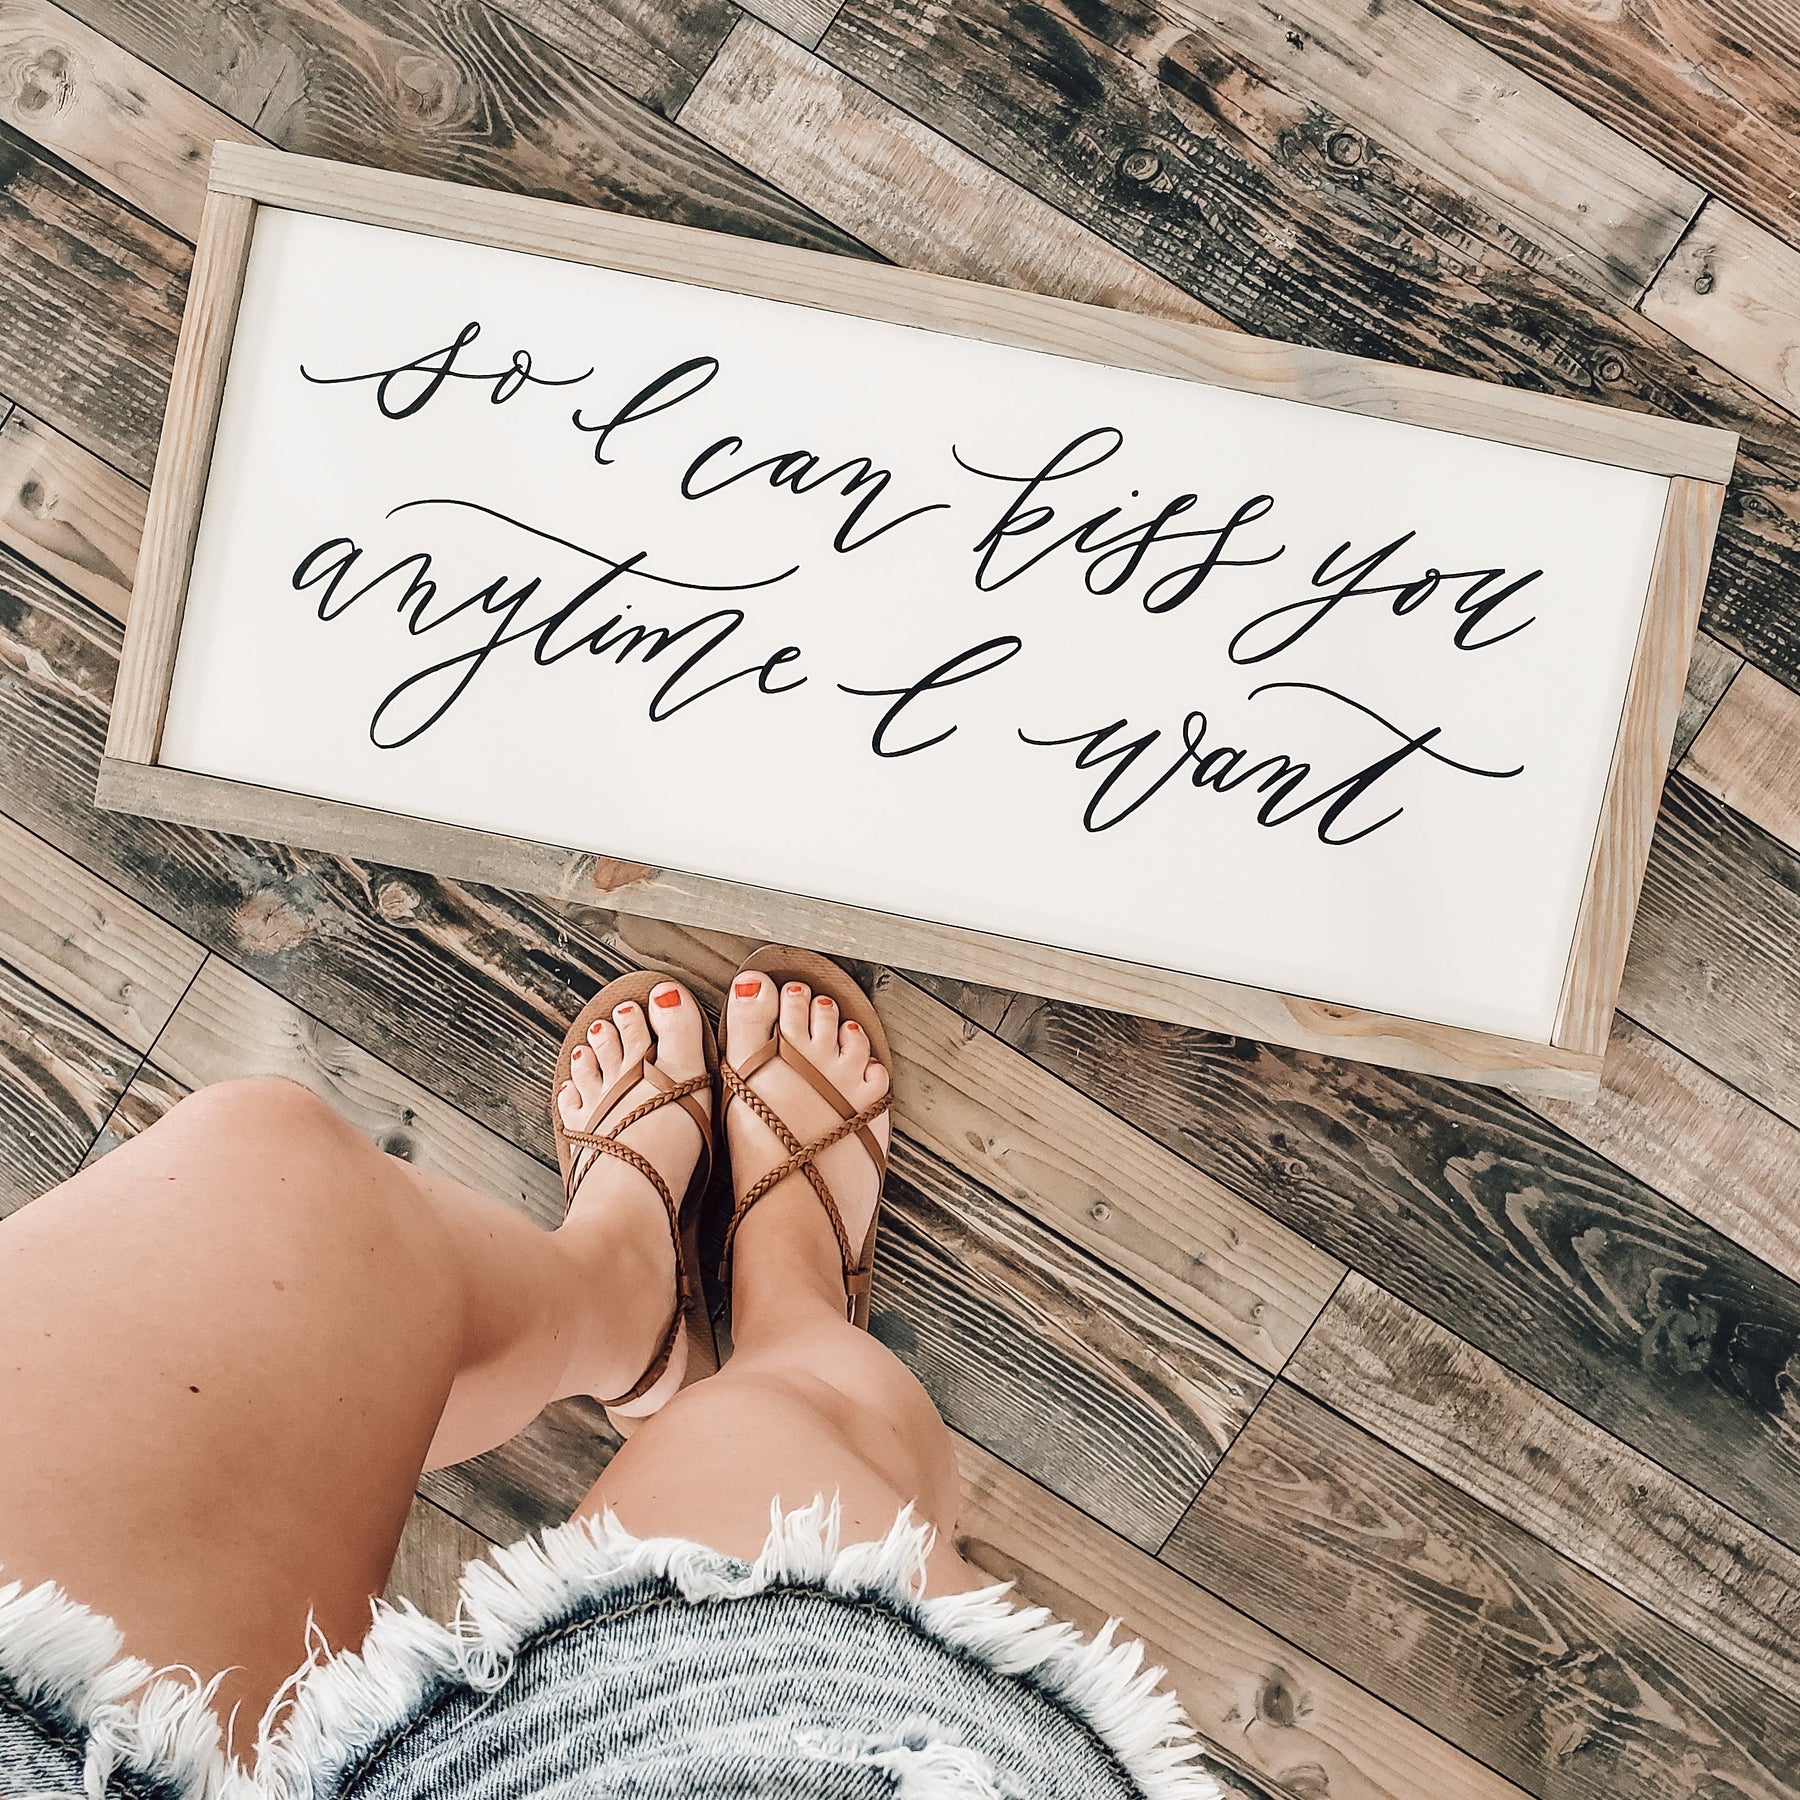 so I can kiss you
anytime I want